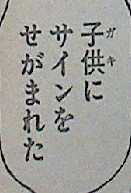 子供に
サインを
せがまれた
ガキ